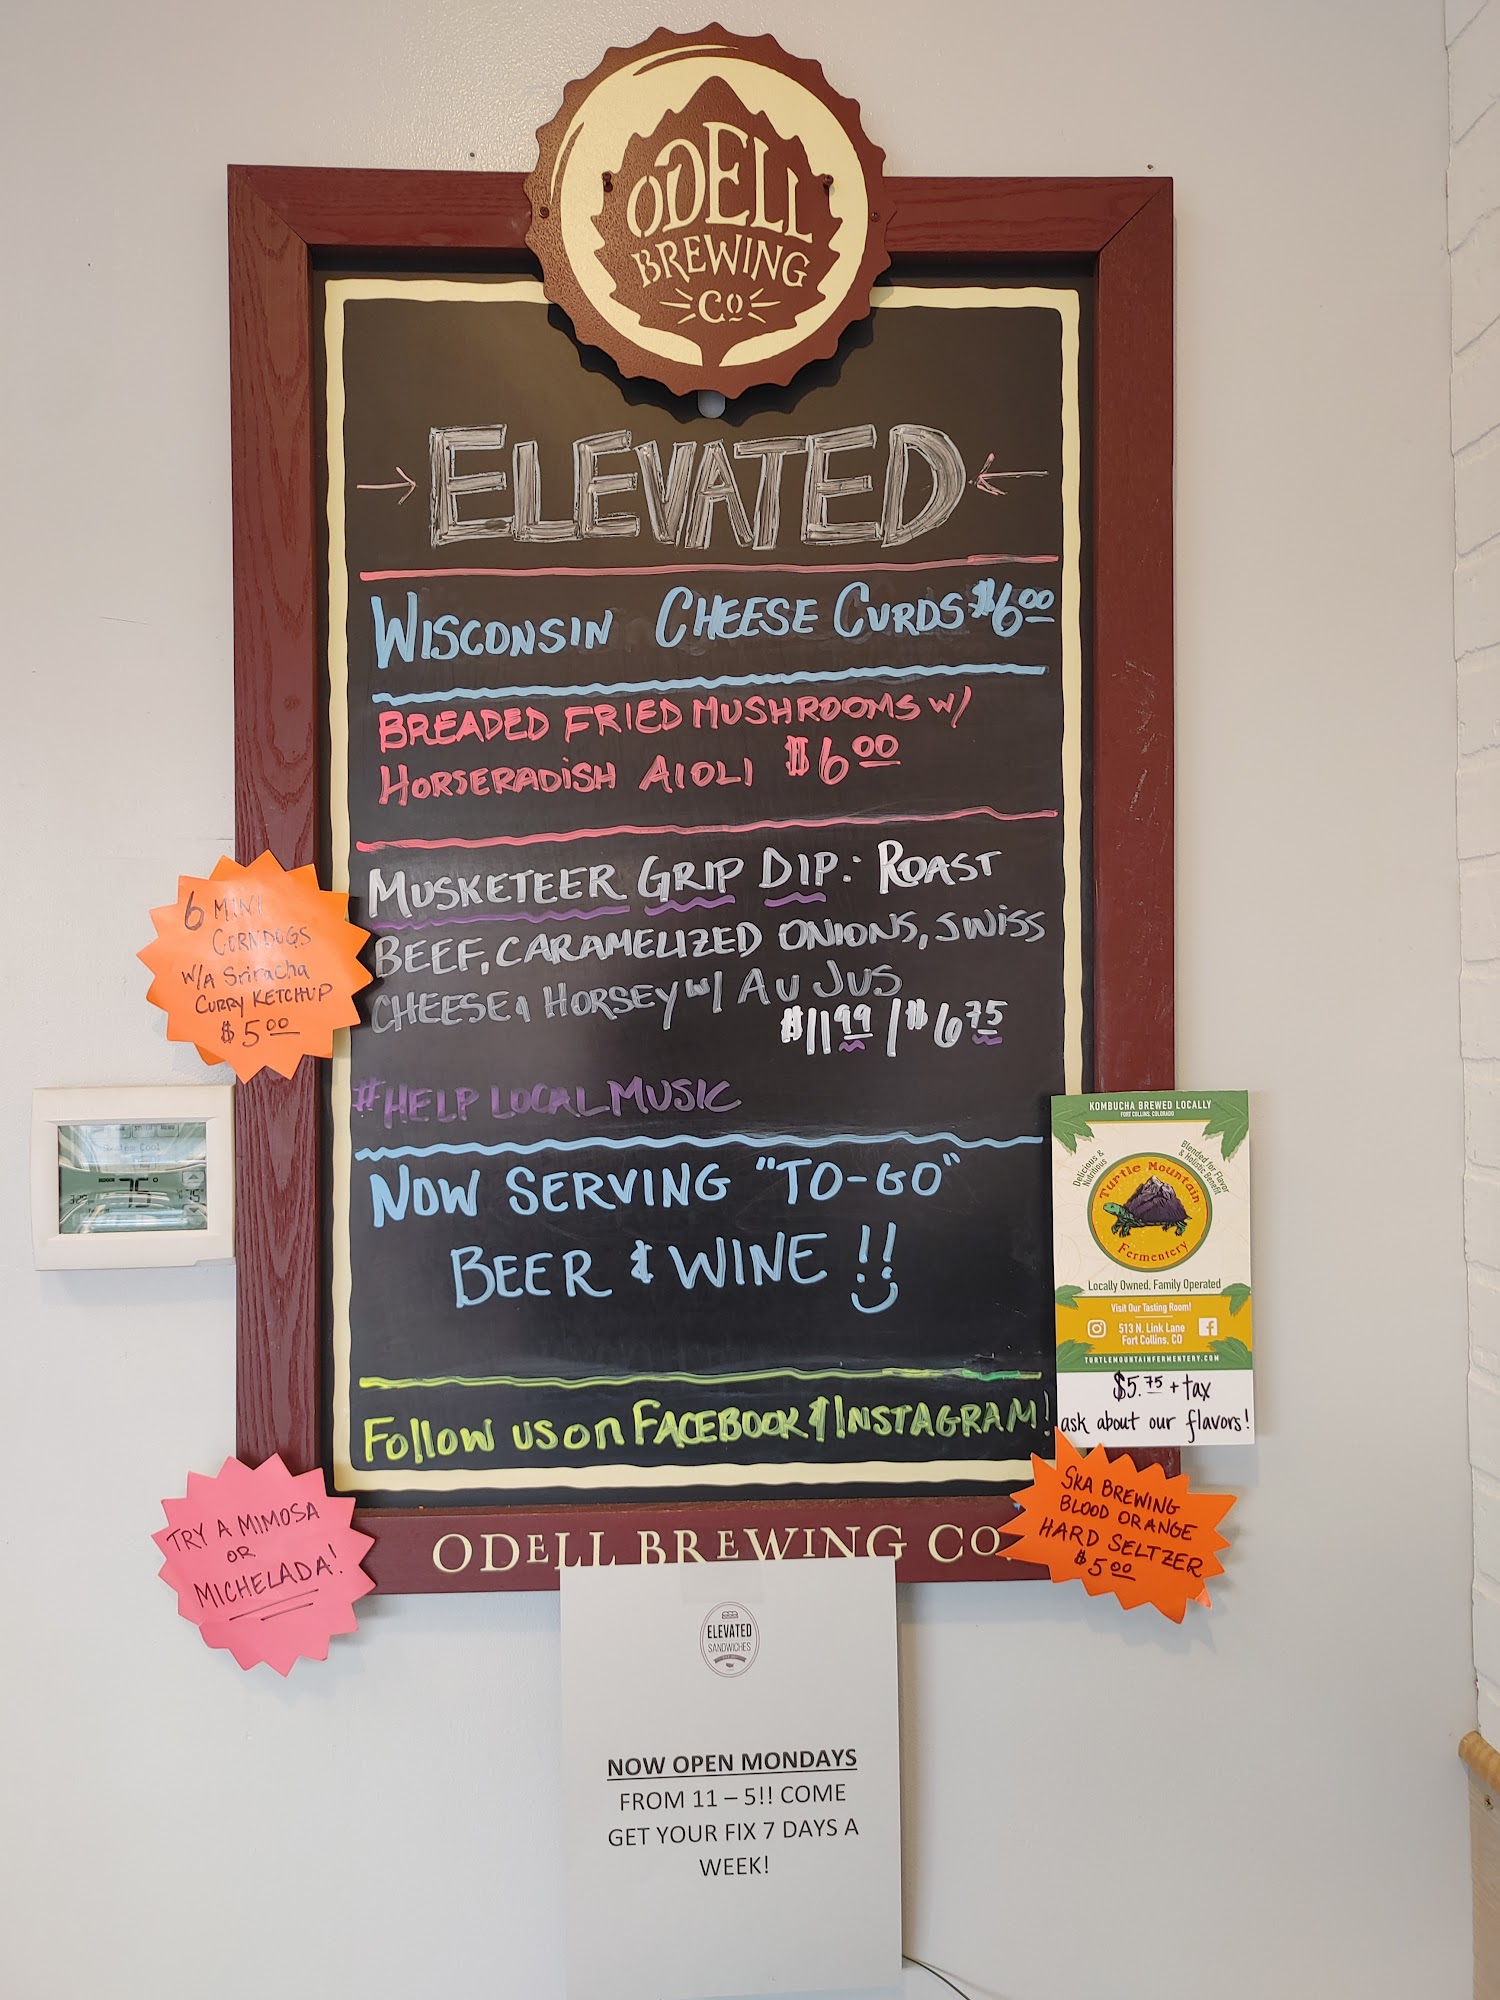 ODELL
BREWING
Co
ELEVATED
WISCONSIN CHEESE CURDS $6.00
BREADED FRIED MUSHROOMS W/
HORSERADISH AIOLI $6.00
MUSKETEER GRIP DIP: ROAST
BEEF, CARAMELIZED ONIONS, SWISS
CHEESE & HORSEY W/ AU JUS
$11.99 / $6.75
#HELP LOCAL MUSIC
NOW SERVING "TO-GO"
BEER & WINE !!
FOLLOW US ON FACEBOOK & INSTAGRAM!
ODELL BREWING CO.
6 MINI
CORNDOGS
W/A Sriracha
CURRY KETCHUP
$5.00
75°
TRY A MIMOSA
OR
MICHELADA!
KOMBUCHA BREWED LOCALLY
FORT COLLINS, COLORADO
Delicious &
Nutritious
Blended for Flavor
& Holistic Benefit
Turtle Mountain
Fermentery
Locally Owned, Family Operated
Visit Our Tasting Room!
513 N. Link Lane
Fort Collins, CO
TURTLEMOUNTAINFERMENTERY.COM
$5.75 + tax
ask about our flavors!
SKA BREWING
BLOOD ORANGE
HARD SELTZER
$5.00
ELEVATED
SANDWICHES
NOW OPEN MONDAYS
FROM 11 – 5!! COME
GET YOUR FIX 7 DAYS A
WEEK!